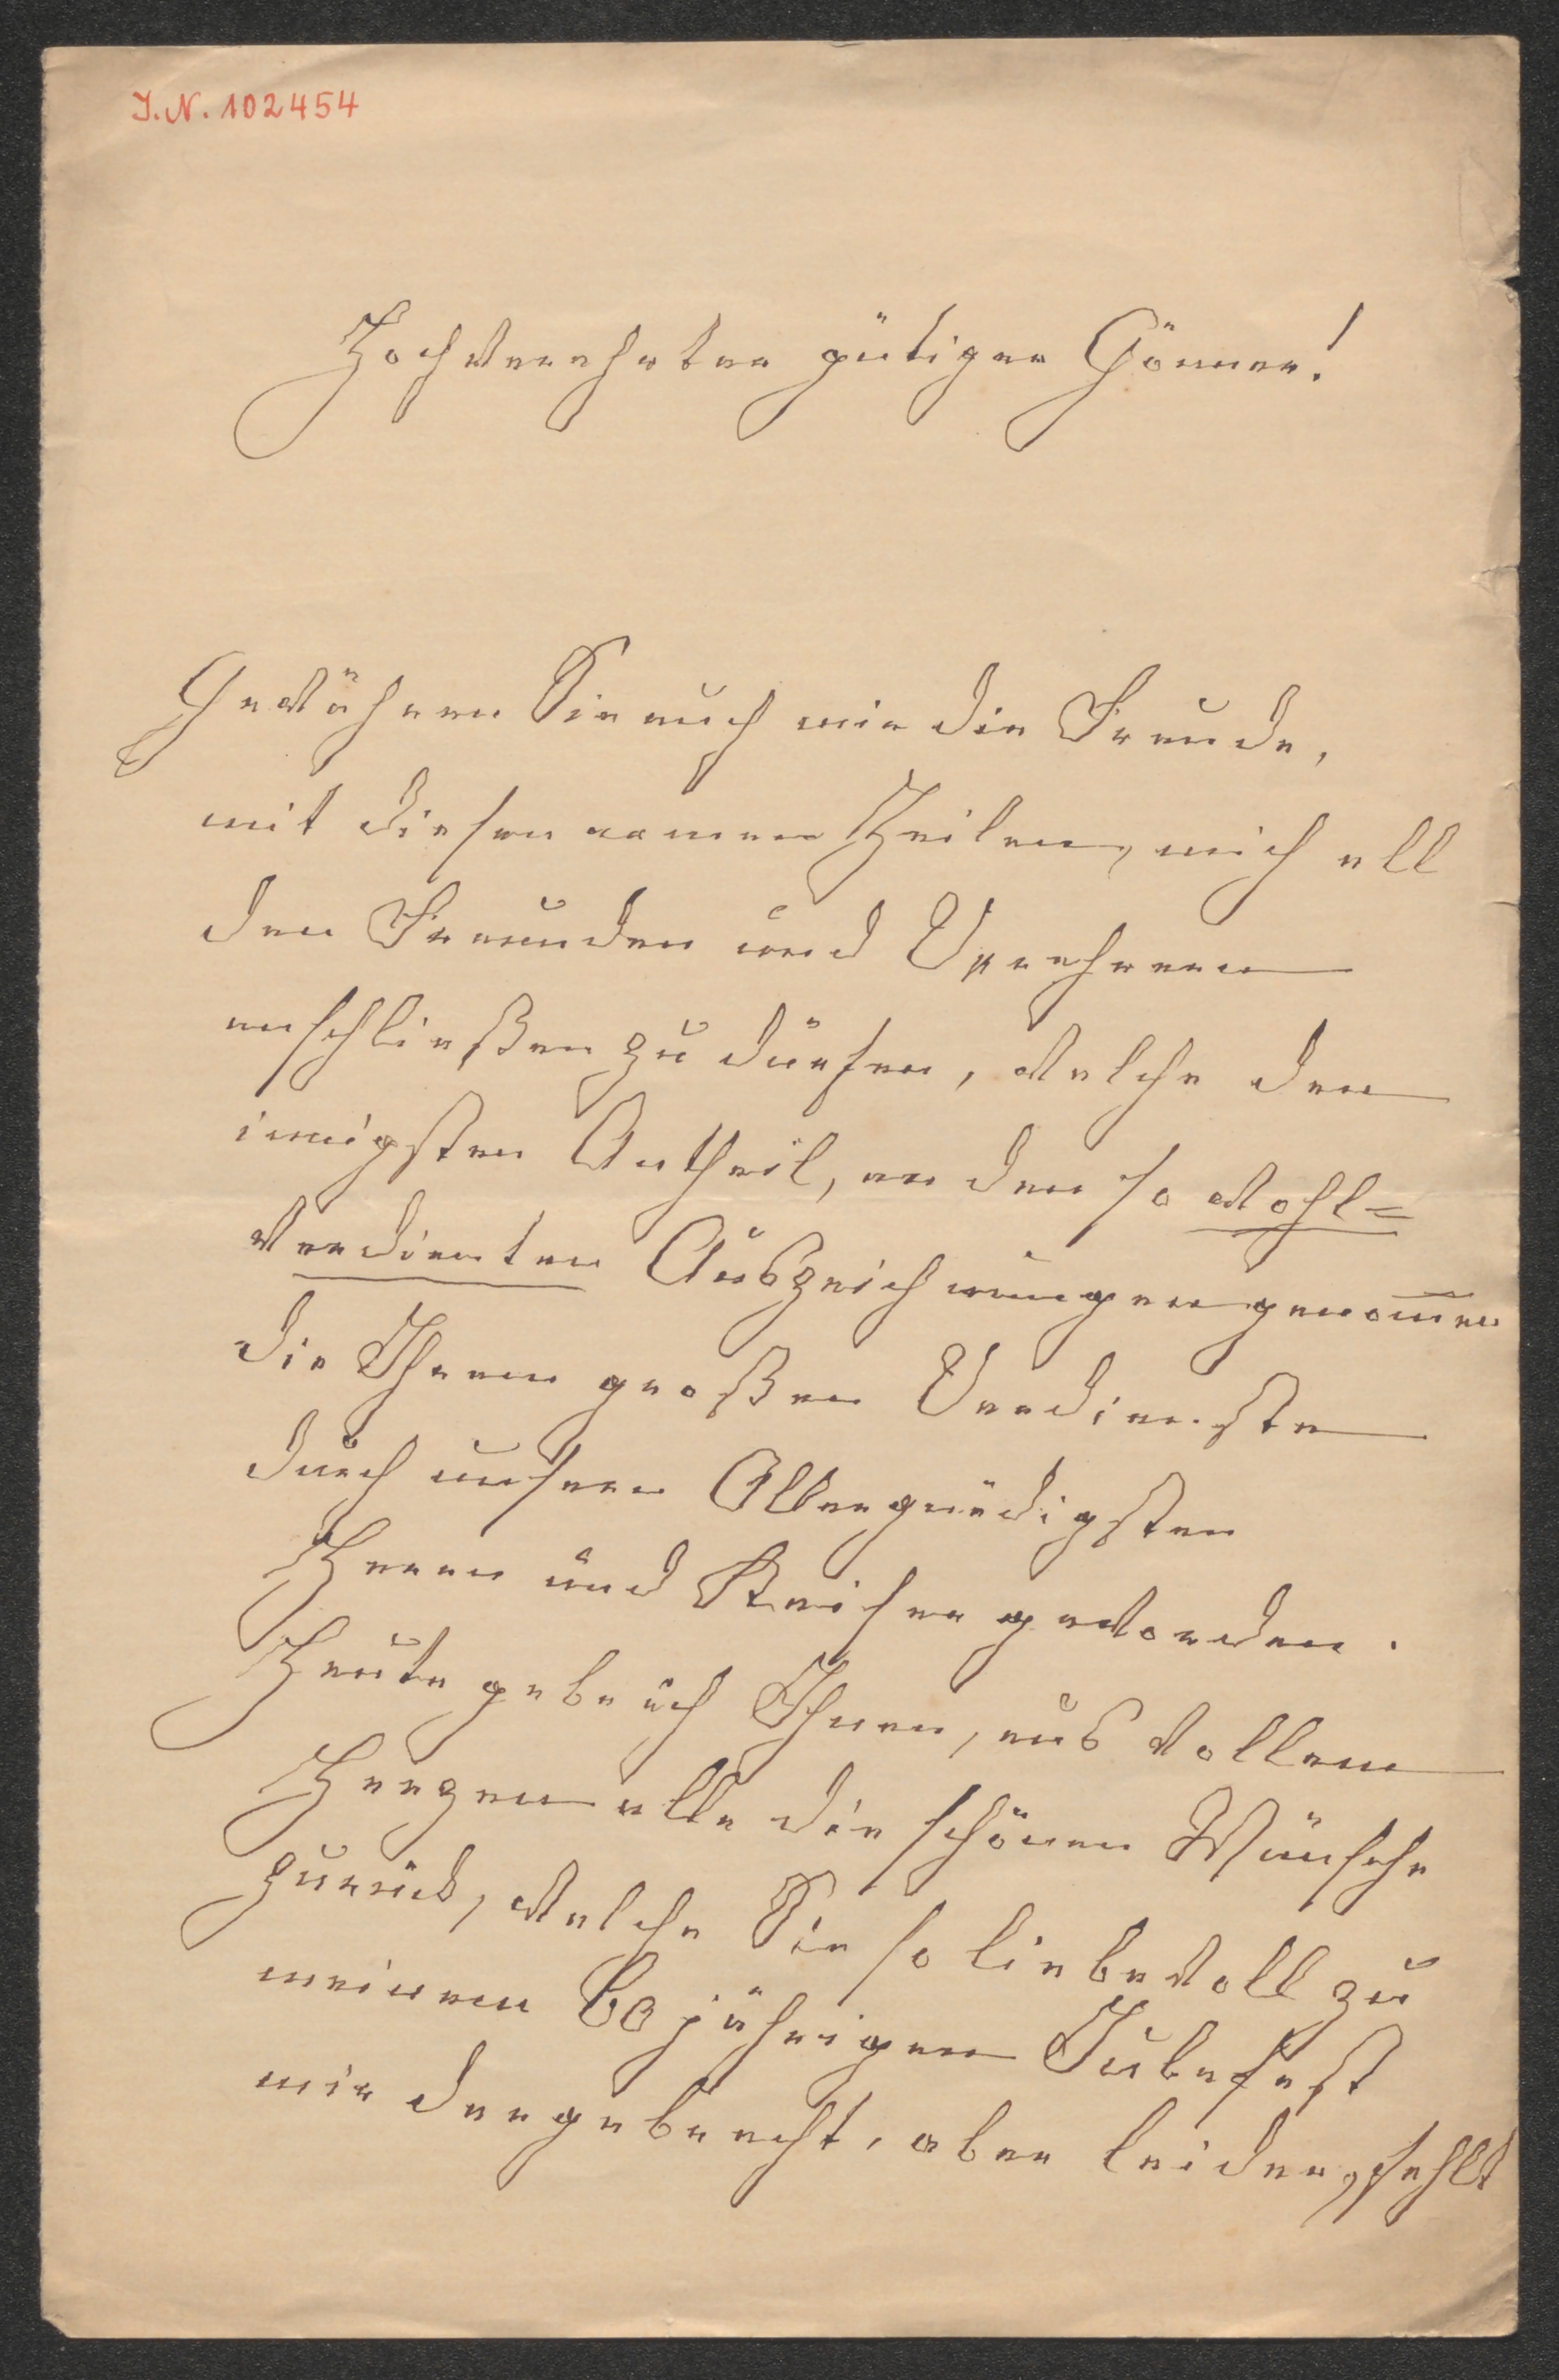 J.N. 102454
Hochverehrter gütiger Gönner!
Gewähren Sie auch mir die Freude,
mit diesen armen Zeilen, mich all
den Freunden und Verehrern
anschließen zu dürfen, welche den
innigsten Antheil, an den so wohl=
verdienten Auszeichnungen genom̅en
die Ihren großen Verdienste
durch unsern Allergnädigsten
Herrn und Kaiser geworden.
Heute gebe ich Ihnen, aus vollem
Herzen alle die schönen Wünsche
zurück, welche Sie so liebevoll zu
meinem 60 jährigen Jubefest
mir dargebracht, aber leider, fehlt